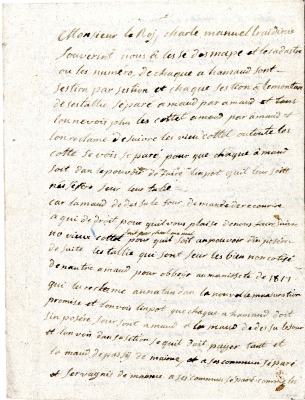 Monsieur le Roy charle manuel
souverint nous à lessé des mape et le cadastre
ou les numero, de chaque a hamaud sont
section par section et chaque section à le montan
de ses tallie separé amaud par amaud et
lon nevois plus les cottel amaud par amaud et
lon reclame de suivre les vieu cottel
cotte se vois separé, pour que chaque amaud
soit dan le pouvoir de faire limpot quil leur sont
sur leur talie
car lamaud de des sus le four demande de recoure
a qui de droit pour quil vous plaise de nous faire suivre
no vieux cottel pour quil soit an pouvoir dimposere
de suite les tallie qui sont sur les bien
de nautre amaud pour obbeyr au manifeste de 1817
qui lu reclame la nouvele mesuration
promise et lon vois limpot que chaque a hamaud doit
sinposere, pour sont amaud et la maud de des su le four
et lon vois dan sa section se quil doit payer tant et
la maud de passé de maime et a ses commun separé
et servagnié de maime a ses commun separé comme les